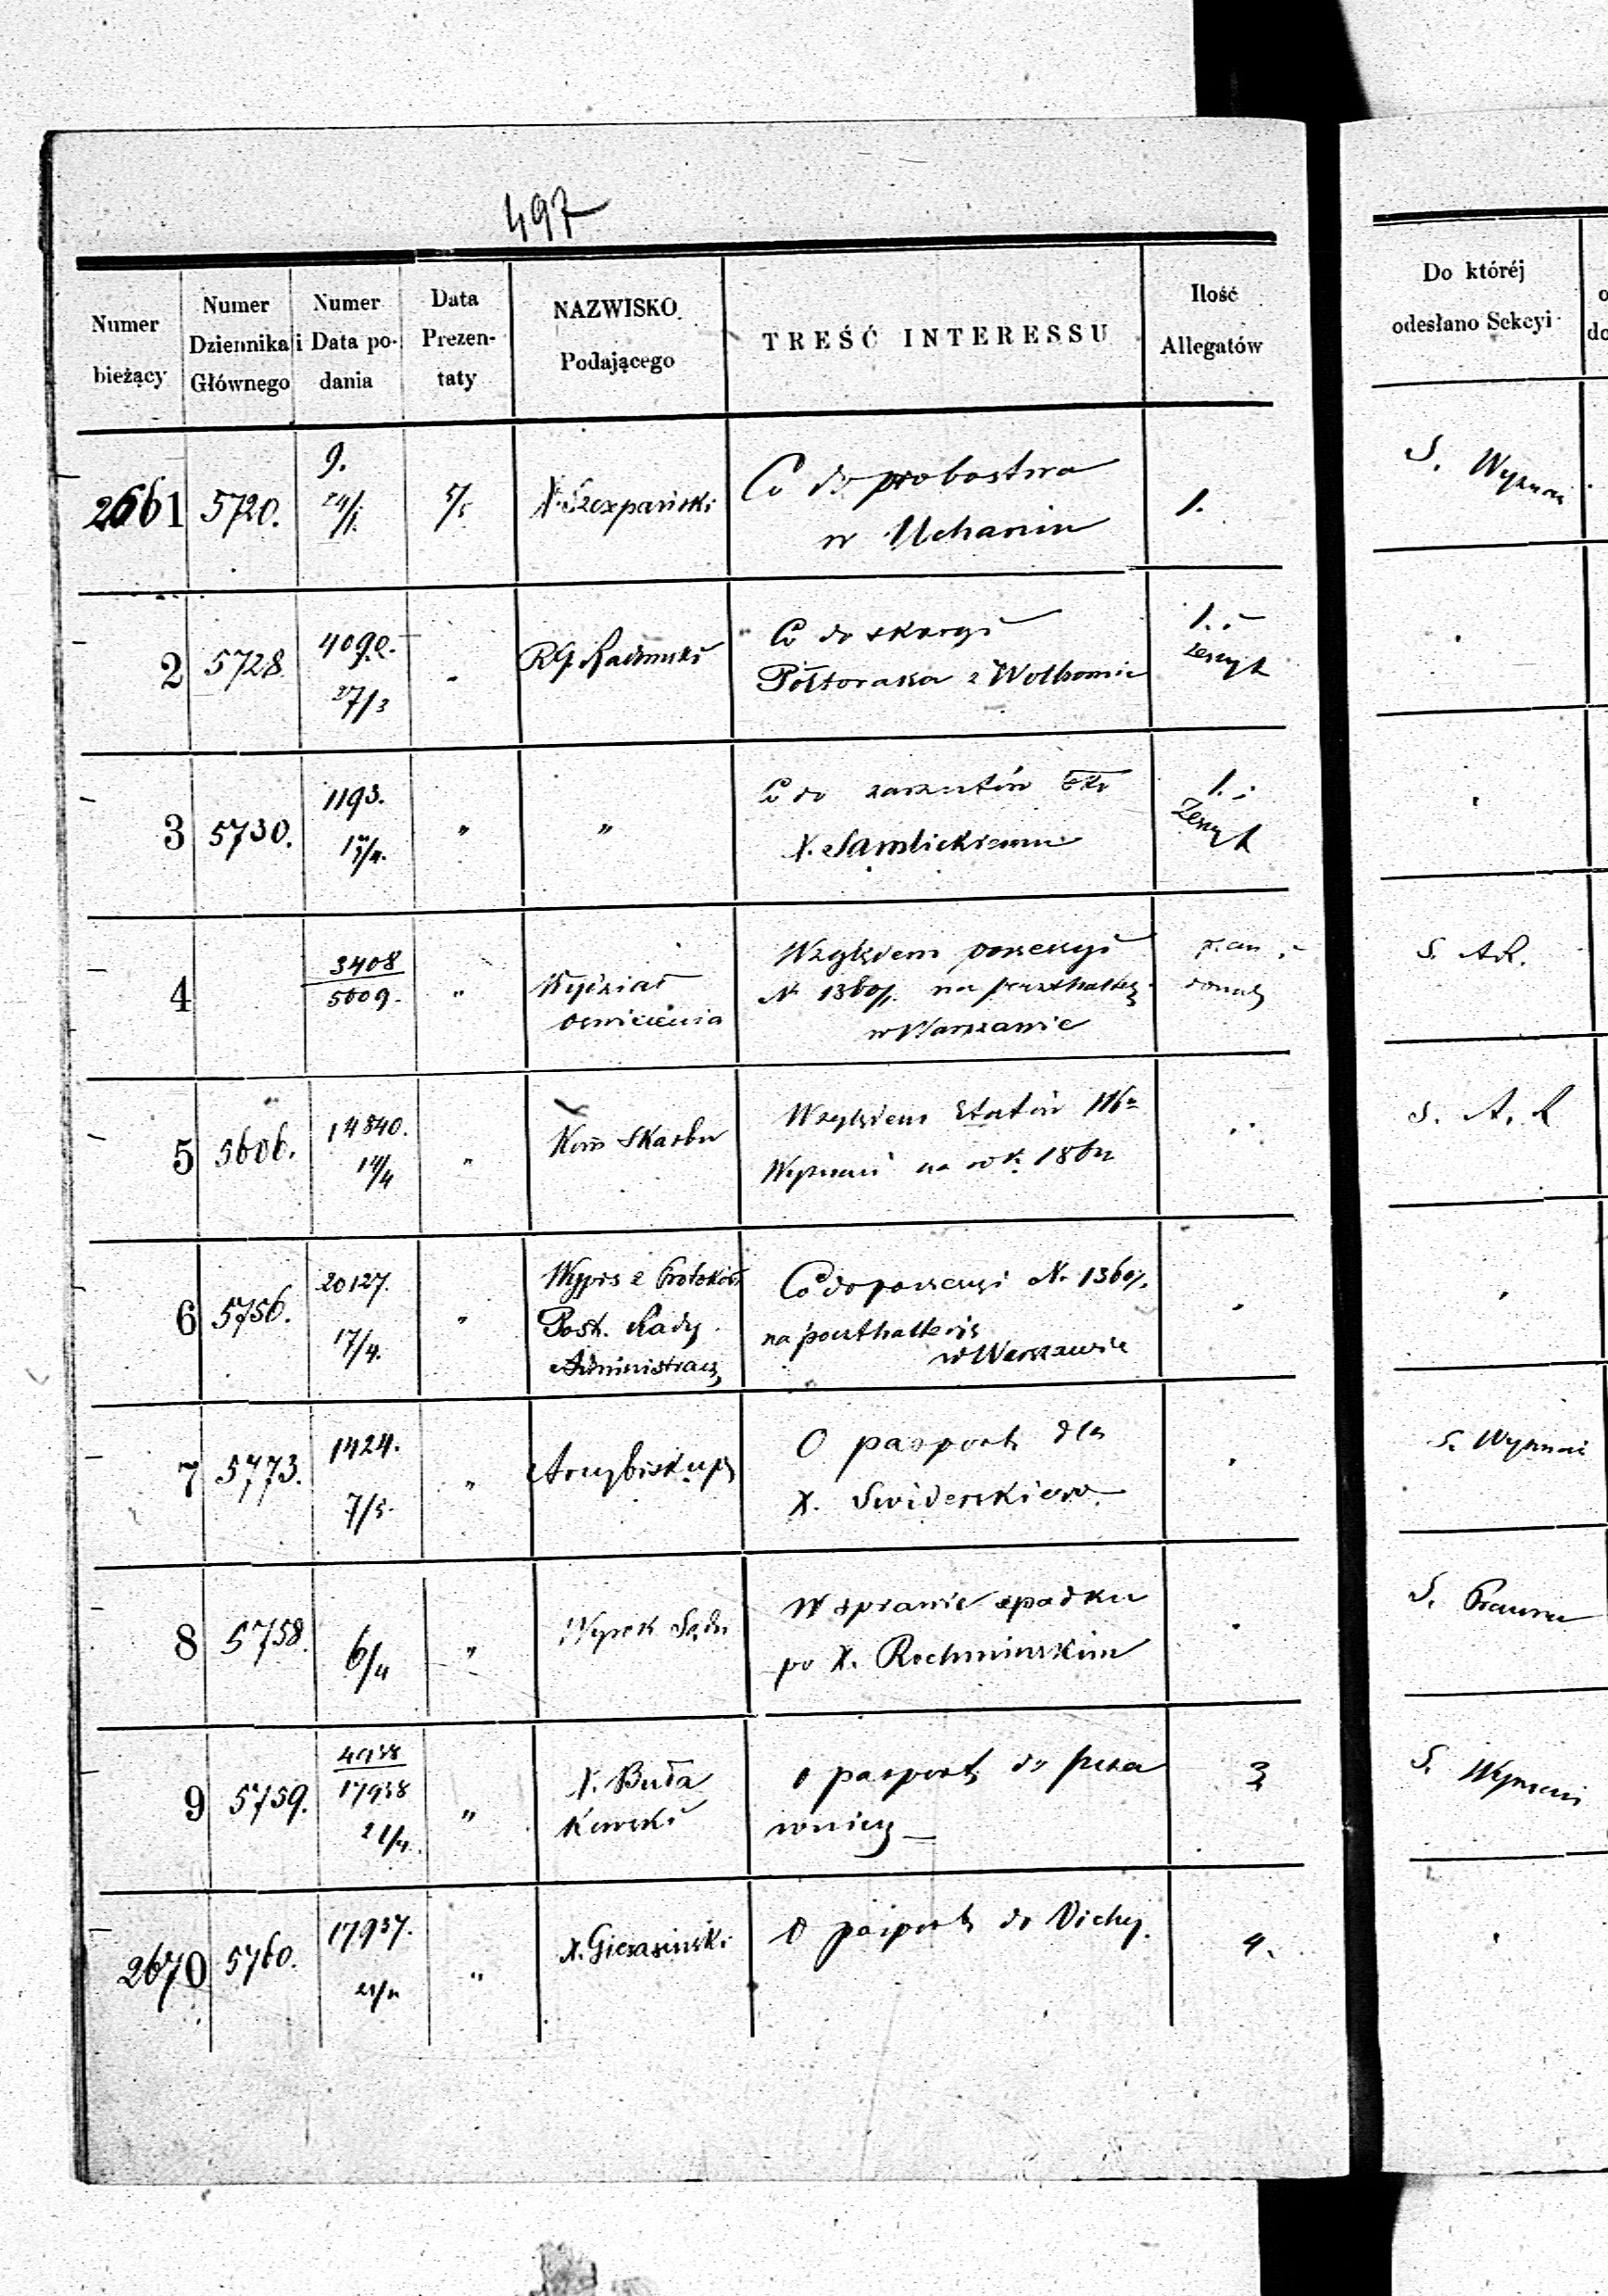 497
Numer bieżący
Numer Dziennika Głównego
Numer i Data podania
Data Prezentaty
NAZWISKO Podającego
TREŚĆ INTERESSU
Ilość Allegatów
Do któréj odesłano Sekcyi
2661 5720. 9. 24/1. 5/5 X. Szczepański Co do probostwa 1. S. Wyznań
w Uchaniu
2 5728. 4092. 27/3 " RG. Radomski Co do skargi 1. zeszyt
Półtoraka z Wolbomia
3 5730. 1193. " " Co do zarzutów 1. Zeszyt
X. Samlickiemu
4 3408 5609. " Wydział Względem possessyi S. A.R.
Oświecenia № 1360/1. na poczthalterją
w Warszawie
5 5606. 14840. 14/4 " Kom Skarbu Względem Etatów S. A. R
Wyznań na rok 1862
6 5756. 20127. 17/4. " Wypis z Protokół. Co do possessyi № 1360/1.
Post. Rady na poczthalterją
Administracy w Warszawie
7 5773. 1424. 7/5. " Arcybiskup O pasport dla S. Wyznań
X. Swiderskiego
8 5758. 6/4 " Wyrok Sądu W sprawie spadku S. Prawna
po X. Rochminskim
9 5759. 4938 17938 21/4. " X. Buła O pasport do Szcza 3 S. Wyznań
kowski wnicy
2670 5760. 17937. 21/4 " X. Gierasiński O pasport do Vichy. 4.